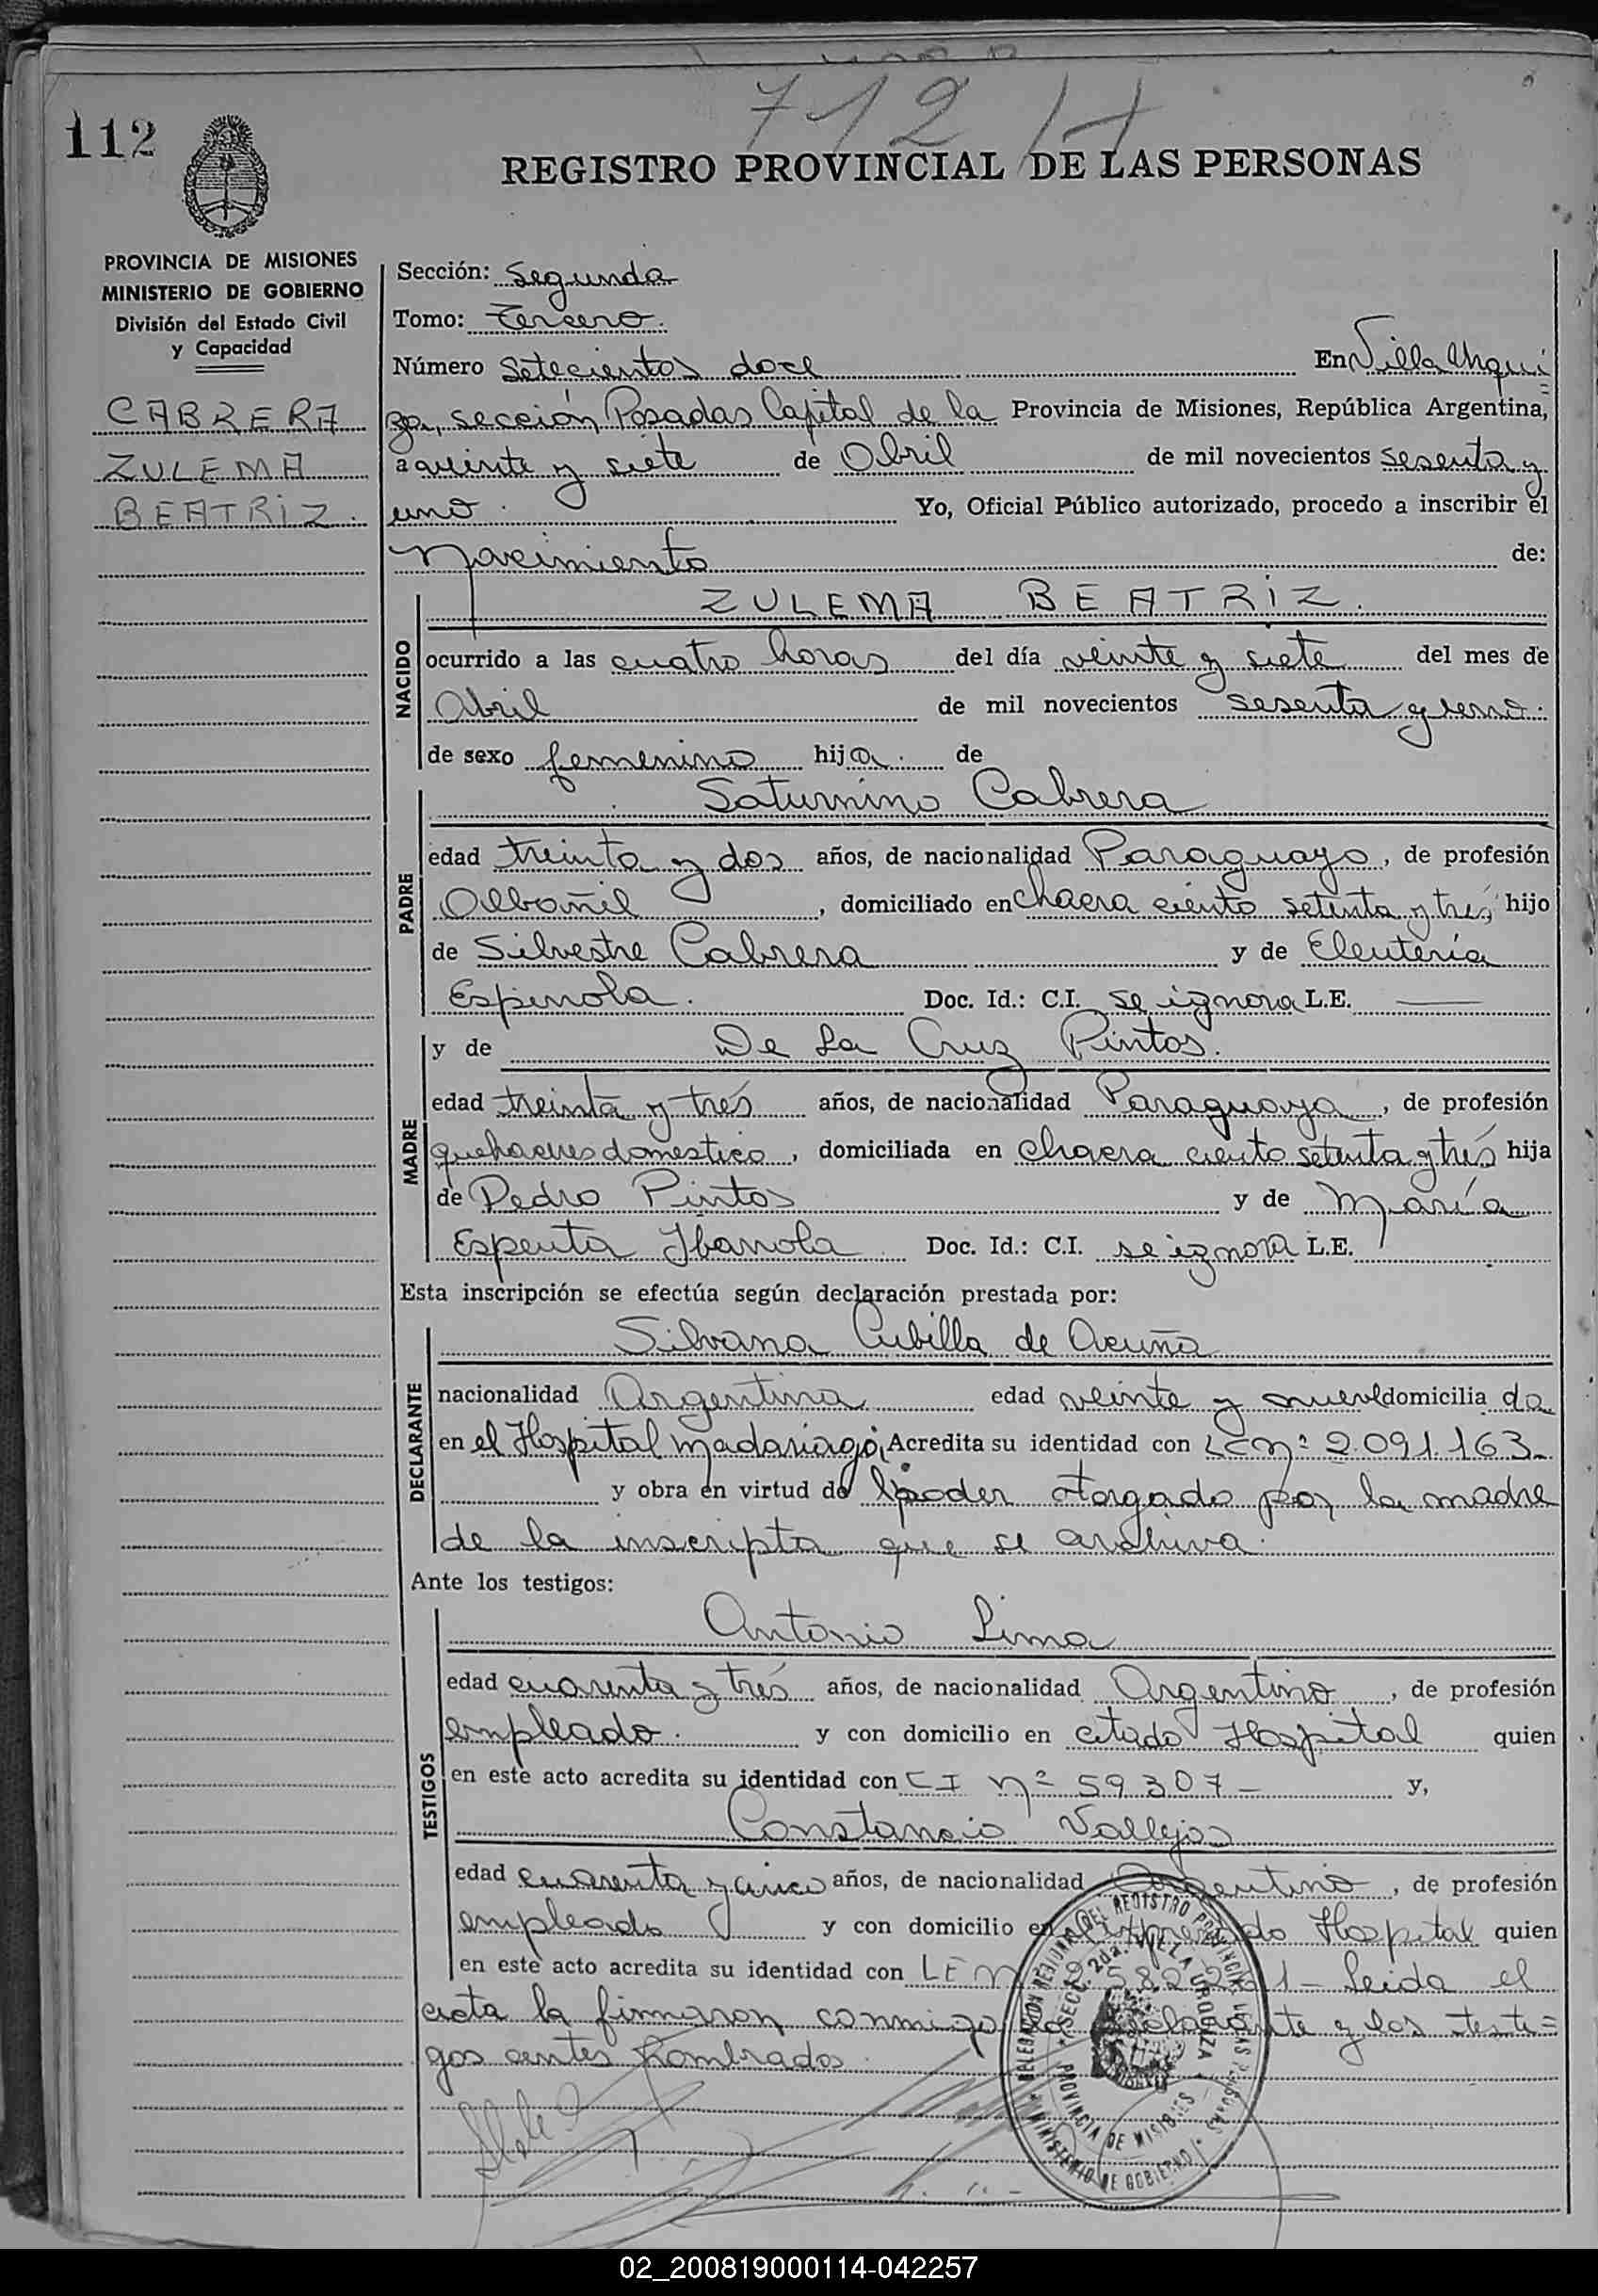 712 H
112
REGISTRO PROVINCIAL DE LAS PERSONAS
PROVINCIA DE MISIONES
MINISTERIO DE GOBIERNO
División del Estado Civil
y Capacidad
CABRERA
ZULEMA
BEATRIZ.
Sección: Segunda
Tomo: Tercero.
Número Setecientos doce En Villa Urqui
za, sección Posadas Capital de la Provincia de Misiones, República Argentina,
a veinte y siete de Abril de mil novecientos sesenta y
uno. Yo, Oficial Público autorizado, procedo a inscribir el
Nacimiento de:
NACIDO
ZULEMA BEATRIZ.
ocurrido a las cuatro horas del día veinte y siete del mes de
Abril de mil novecientos sesenta y uno.
de sexo femenino hija. de
PADRE
Saturnino Cabrera
edad treinta y dos años, de nacionalidad Paraguayo, de profesión
Albañil, domiciliado en chacra ciento setenta y trés, hijo
de Silvestre Cabrera y de Eleuteria
Espinola. Doc. Id.: C.I. se ignora L.E.
MADRE
y de De La Cruz Pintos.
edad treinta y trés años, de nacionalidad Paraguaya, de profesión
quehaceres domestico, domiciliada en chacra ciento setenta y trés hija
de Pedro Pintos y de María
Espenta Ibarrola Doc. Id.: C.I. se ignora L.E.
Esta inscripción se efectúa según declaración prestada por:
DECLARANTE
Silvana Cubilla de Acuña
nacionalidad Argentina edad veinte y nueve domicilia da
en el Hospital Madariaga, Acredita su identidad con LC nº 2.091.163
y obra en virtud de poder otorgado por la madre
de la inscripta que se archiva.
Ante los testigos:
TESTIGOS
Antonio Lima
edad cuarenta y trés años, de nacionalidad Argentino, de profesión
empleado. y con domicilio en citado Hospital quien
en este acto acredita su identidad con CI nº 59307 y,
Constancio Vallejos
edad cuarenta y cinco años, de nacionalidad Argentino, de profesión
empleado y con domicilio en Hospital quien
en este acto acredita su identidad con LE Leida el
acta la firmaron conmigo la declarante y los testi=
gos antes nombrados.
DELEGACION REGIONAL DEL REGISTRO PROVINCIAL DE LAS PERSONAS
MINISTERIO DE GOBIERNO
SECC. 2da. VILLA URQUIZA
PROVINCIA DE MISIONES
02_200819000114-042257